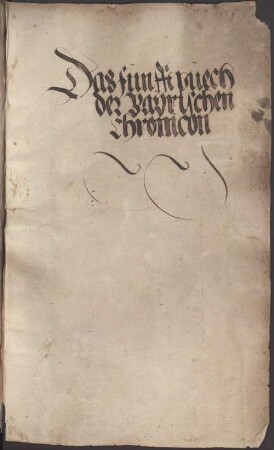 Das funfft puech
der Bayrischen
Chronicon